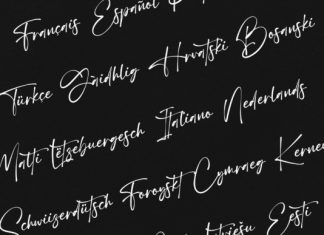 Français Español
Türkçe Gàidhlig Hrvatski Bosanski
Malti Lëtzebuergesch Italiano Nederlands
Schwiizerdütsch Føroyskt Cymraeg
Eesti